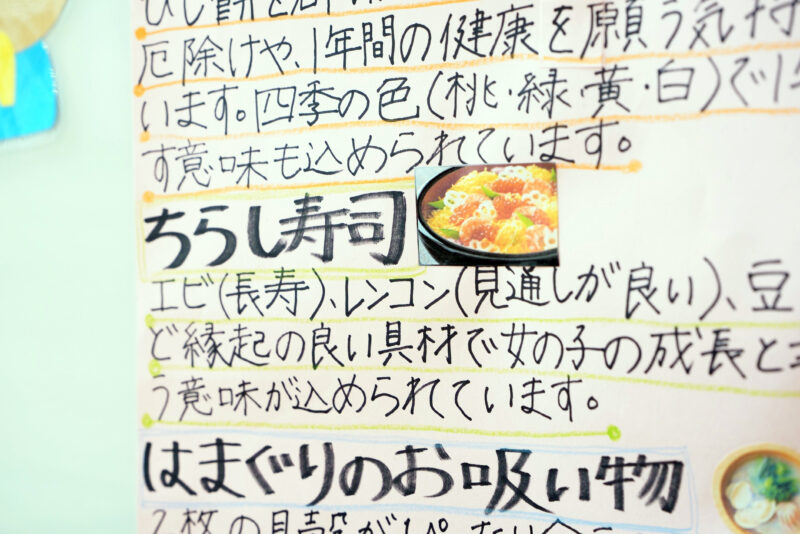 厄除けや、1年間の健康を願う気持
います。四季の色(桃・緑・黄・白)で1年
す意味も込められています。
ちらし寿司
エビ(長寿)、レンコン(見通しが良い)、豆
ど縁起の良い具材で女の子の成長と
う意味が込められています。
はまぐりのお吸い物